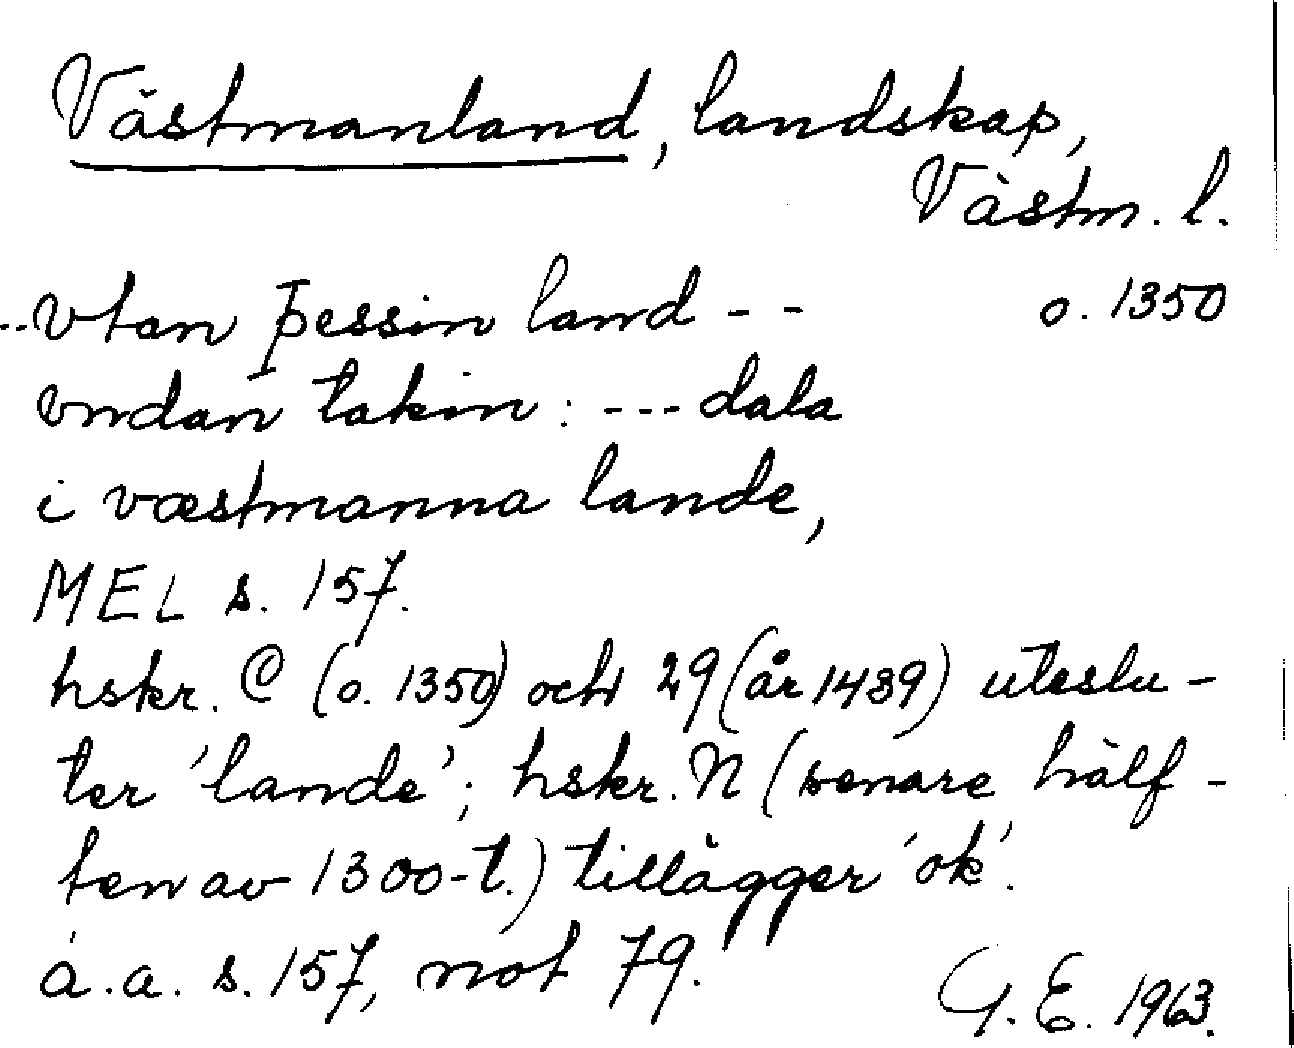 Västmanland, landskap,
Västm. l.
o. 1350
--vtan þessin land --
vndan takin: --- dala
i væstmanna lande,
MEL s. 157.
hskr. C (o. 1350) och 29 (år 1439) uteslu-
ter 'lande'; hskr. N (senare hälf-
ten av 1300-t.) tillägger 'ok'.
a.a. s. 157, not 79.
G.E. 1963.